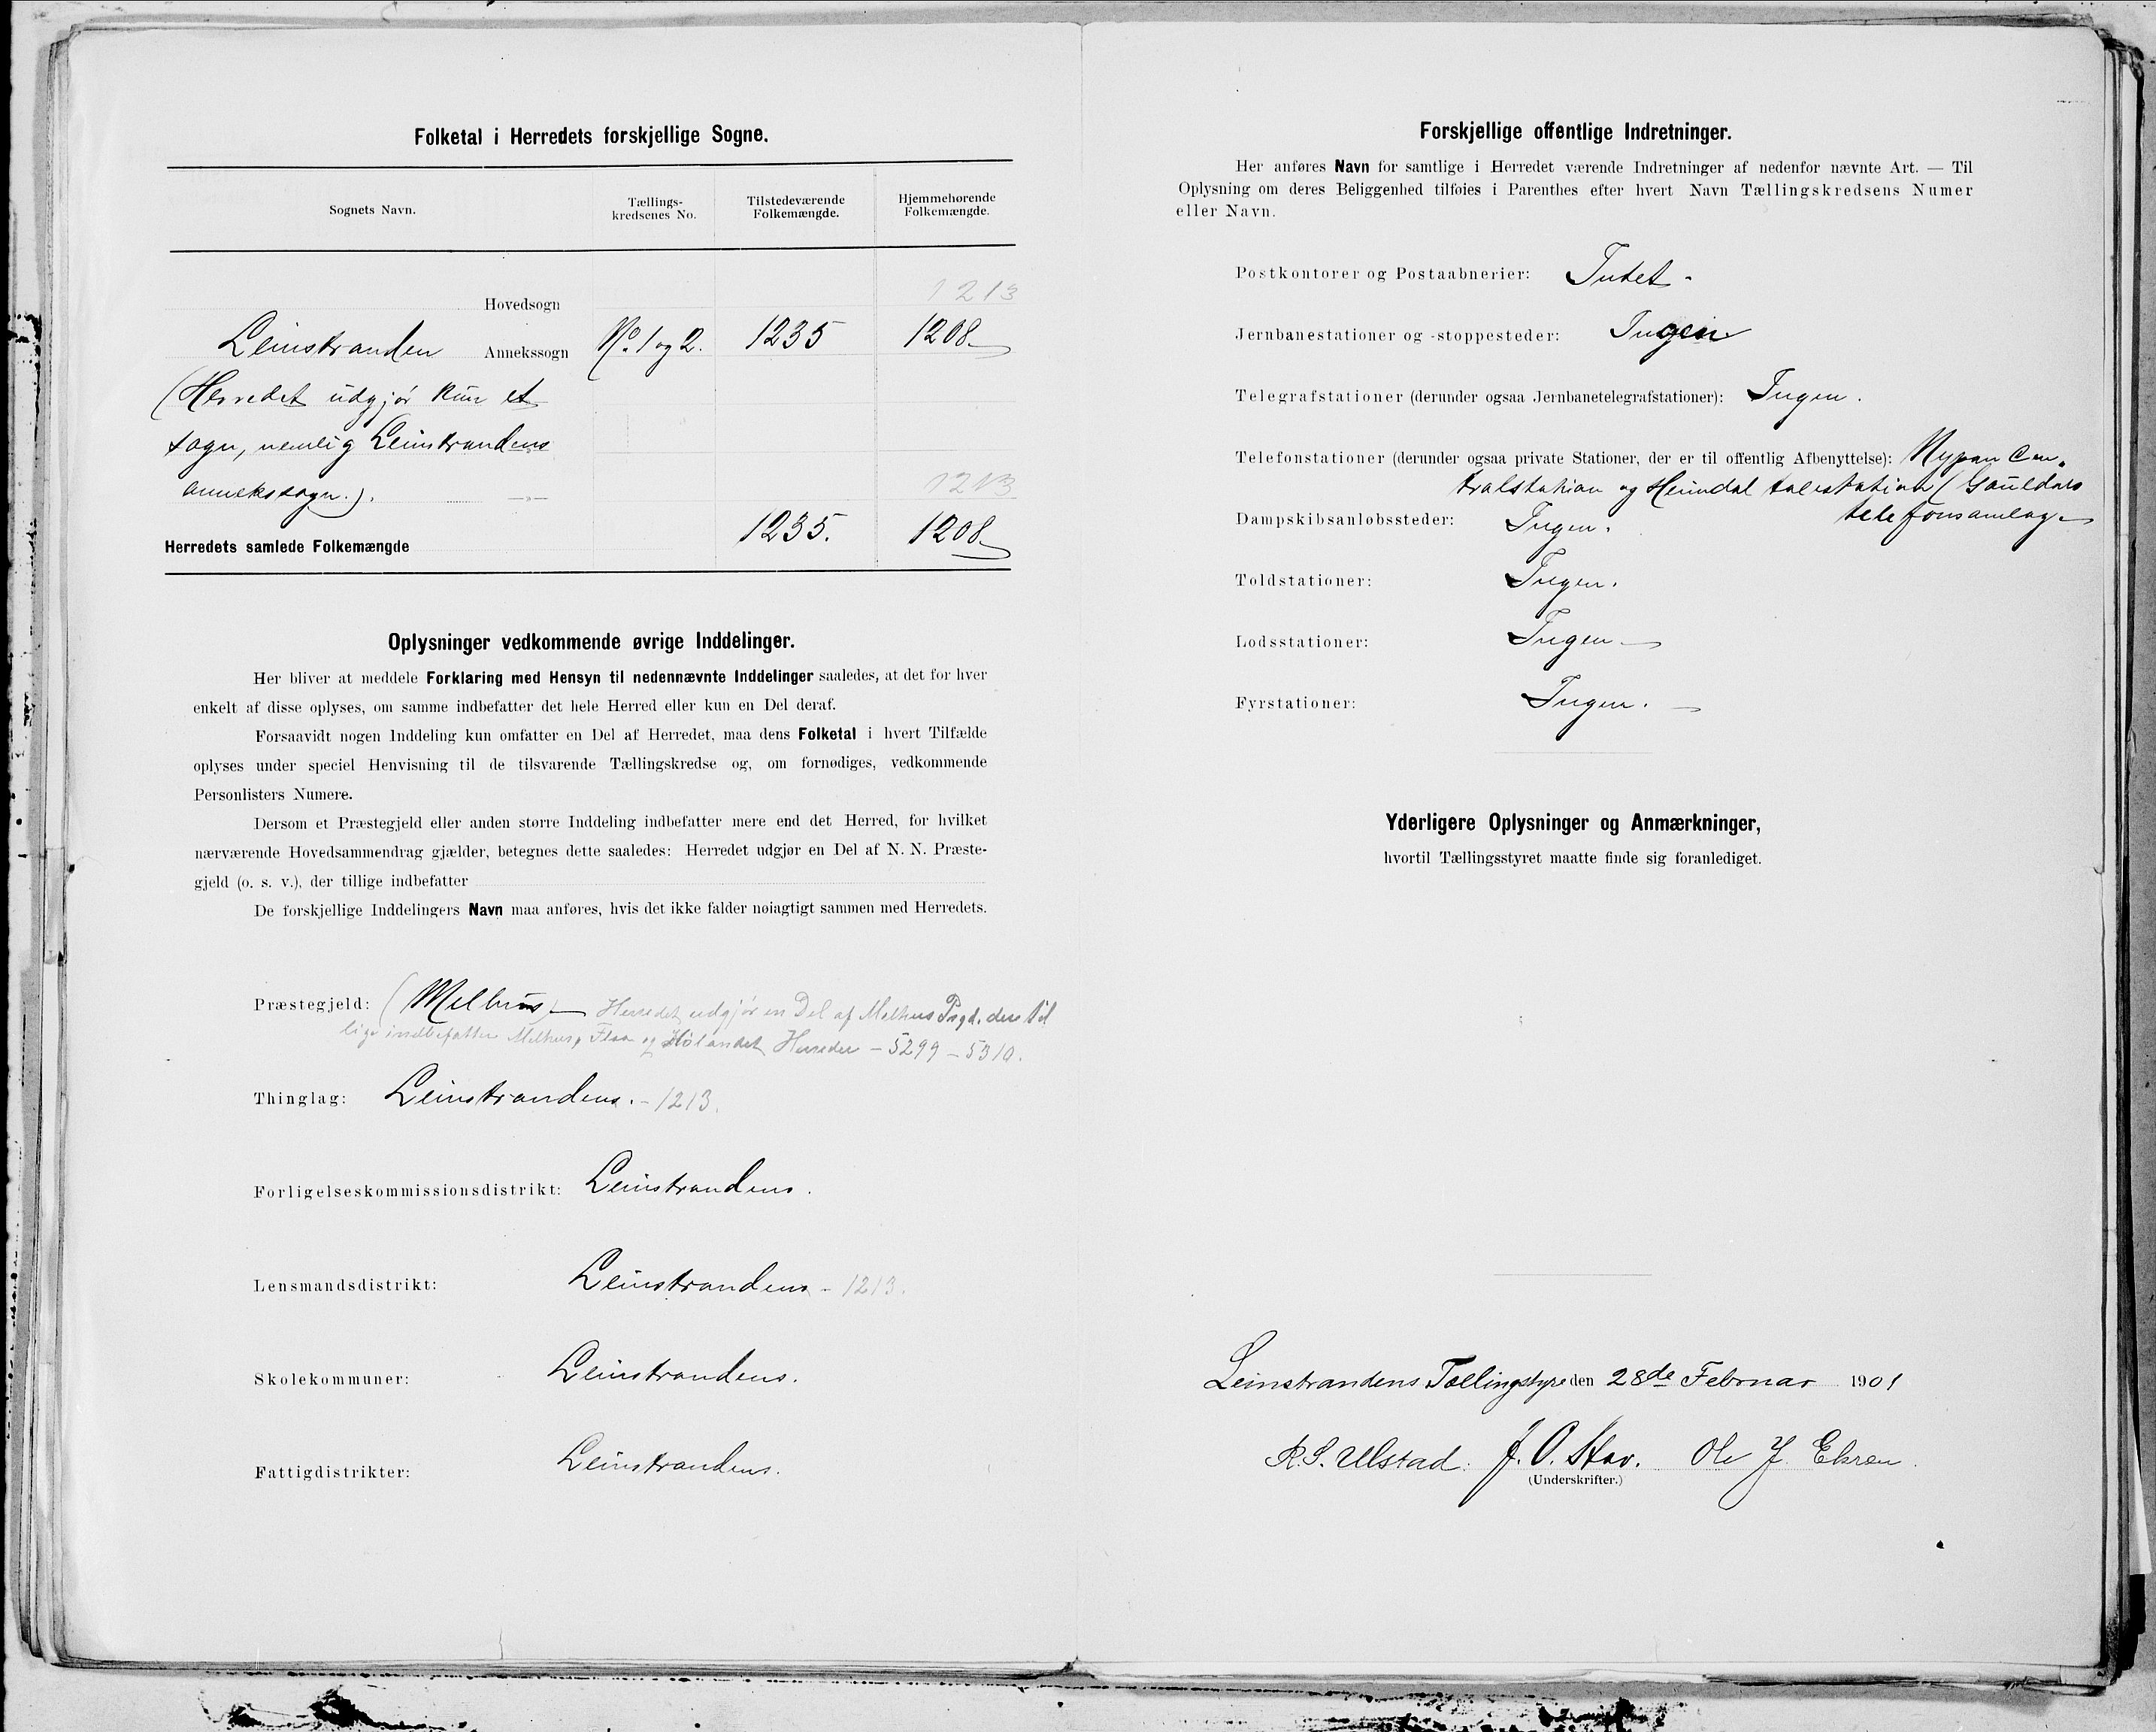 Folketal i Herredets forskjellige Sogne.
Sognets Navn.
Tællings-
kredsenes No.
Tilstedeværende
Folkemængde.
Hjemmehørende
Folkemængde.
1213
Hovedsogn
Leinstranden Annekssogn No. 1 og 2. 1235 1208
(Herredet udgjør kun et
sogn, nemlig Leinstrandens
annekssogn.).
1213
Herredets samlede Folkemængde 1235. 1208
Oplysninger vedkommende øvrige Inddelinger.
Her bliver at meddele Forklaring med Hensyn til nedennævnte Inddelinger saaledes, at det for hver
enkelt af disse oplyses, om samme indbefatter det hele Herred eller kun en Del deraf.
Forsaavidt nogen Inddeling kun omfatter en Del af Herredet, maa dens Folketal i hvert Tilfælde
oplyses under speciel Henvisning til de tilsvarende Tællingskredse og, om fornødiges, vedkommende
Personlisters Numere.
Dersom et Præstegjeld eller anden større Inddeling indbefatter mere end det Herred, for hvilket
nærværende Hovedsammendrag gjælder, betegnes dette saaledes: Herredet udgjør en Del af N. N. Præste-
gjeld (o. s. v.), der tillige indbefatter
De forskjellige Inddelingers Navn maa anføres, hvis det ikke falder nøiagtigt sammen med Herredets.
Præstegjeld: (Melhus) Herredet udgjør en Del af Melhus Prgd. der til
lige indbefatter Melhus, Flaa og Hølandet Herreder - 5299 - 5310.
Thinglag: Leinstrandens. - 1213.
Forligelseskommissionsdistrikt: Leinstrandens.
Lensmandsdistrikt: Leinstrandens - 1213.
Skolekommuner: Leinstrandens.
Fattigdistrikter: Leinstrandens.
Forskjellige offentlige Indretninger.
Her anføres Navn for samtlige i Herredet værende Indretninger af nedenfor nævnte Art. — Til
Oplysning om deres Beliggenhed tilføies i Parenthes efter hvert Navn Tællingskredsens Numer
eller Navn.
Postkontorer og Postaabnerier: Intet -
Jernbanestationer og -stoppesteder: Ingen
Telegrafstationer (derunder ogsaa Jernbanetelegrafstationer): Ingen.
Telefonstationer (derunder ogsaa private Stationer, der er til offentlig Afbenyttelse): Nypan Cen-
tralstation og Heimdal talestation (Gauldals
telefonsamlag
Dampskibsanløbssteder: Ingen.
Toldstationer: Ingen.
Lodsstationer: Ingen
Fyrstationer: Ingen.
Yderligere Oplysninger og Anmærkninger,
hvortil Tællingsstyret maatte finde sig foranlediget.
Leinstrandens Tællingstyre den 28de Februar 1901
R. S. Ulstad. J. O. Stav. Ole J. Ekren
(Underskrifter.)